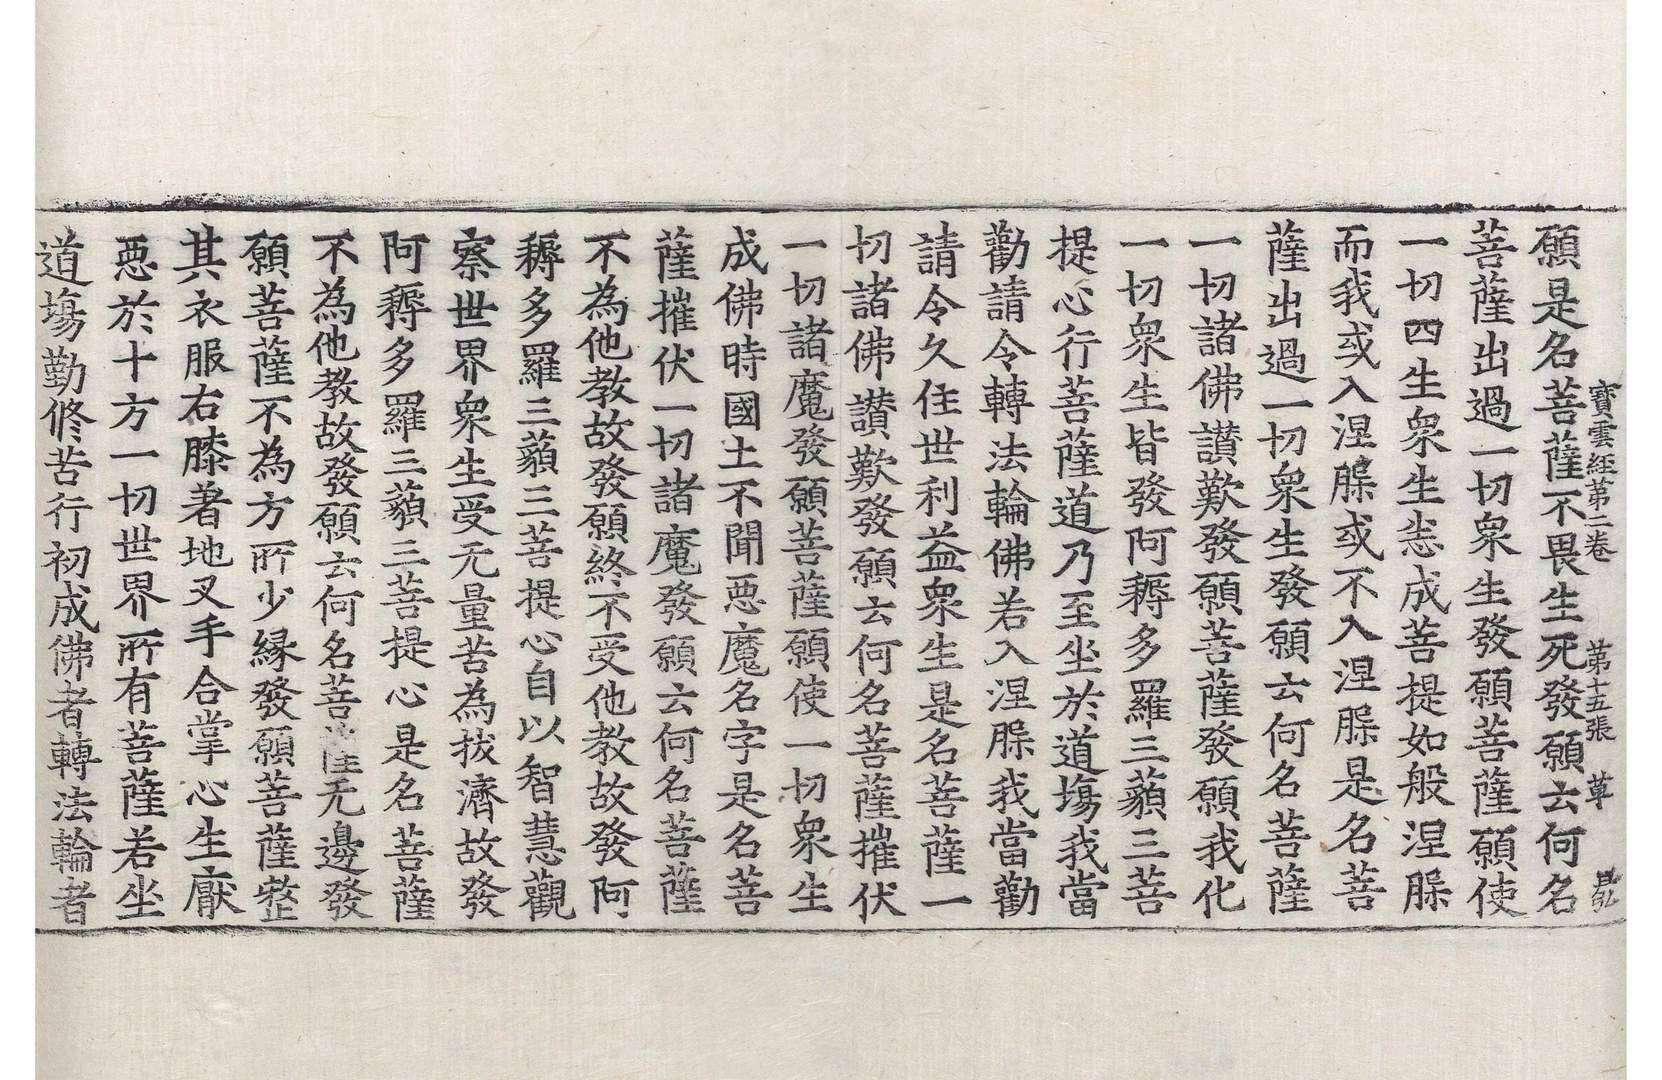 寶雲經第二卷 第十五張 草
願是名菩薩不畏生死發願云何名
菩薩出過一切衆生發願菩薩願使
一切四生衆生悉成菩提如般涅槃
而我或入涅槃或不入涅槃是名菩
薩出過一切衆生發願云何名菩薩
一切諸佛讃歎發願菩薩發願我化
一切衆生皆發阿耨多羅三藐三菩
提心行菩薩道乃至坐於道塲我當
勸請令轉法輪佛若入涅槃我當勸
請令久住世利益衆生是名菩薩一
切諸佛讃歎發願云何名菩薩摧伏
一切諸魔發願菩薩願使一切衆生
成佛時國土不聞惡魔名字是名菩
薩摧伏一切諸魔發願云何名菩薩
不為他教故發願終不受他教故發阿
耨多羅三藐三菩提心自以智慧觀
察世界衆生受无量苦為拔濟故發
阿耨多羅三藐三菩提心是名菩薩
不為他教故發願云何名菩薩无邊發
願菩薩不為方所少縁發願菩薩整
其衣服右膝著地叉手合掌心生厭
惡於十方一切世界所有菩薩若坐
道塲勤修苦行初成佛者轉法輪者